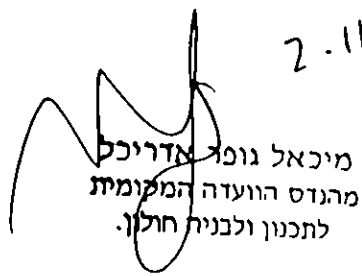 2.11
מיכאל גופר אדריכל
מהנדס הוועדה המקומית
לתכנון ולבניה חולון.